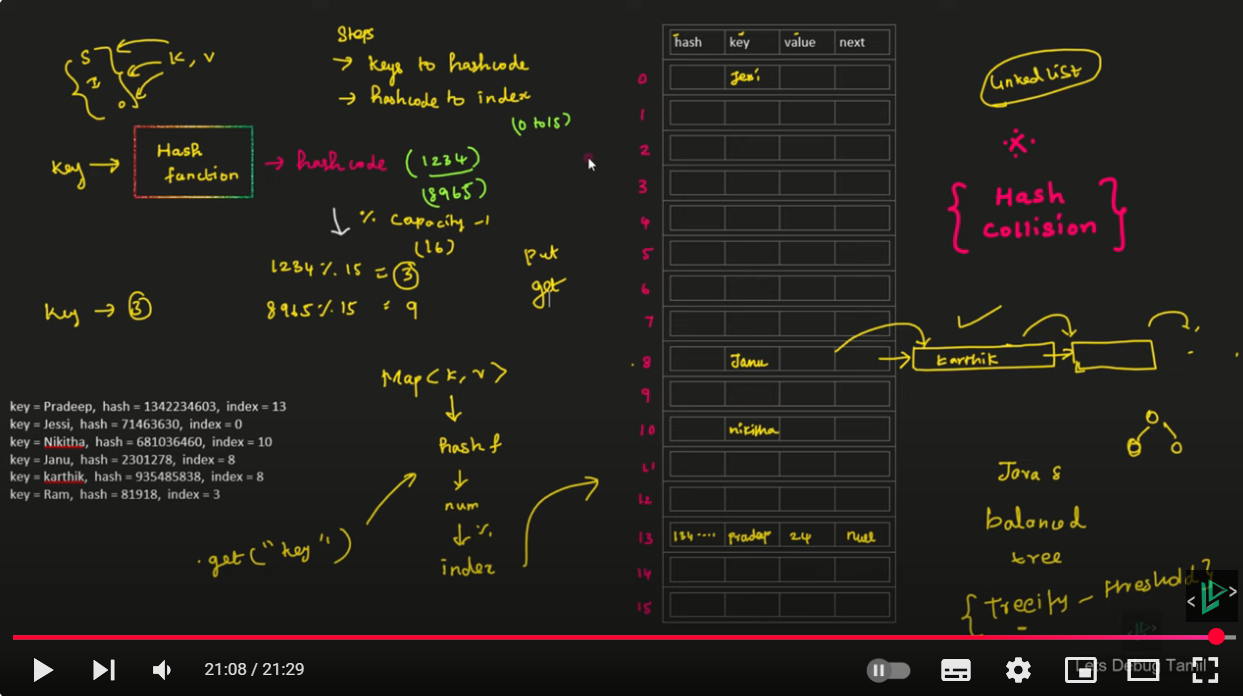 S
I
O
K, V
Steps
→ keys to hashcode
→ hashcode to index
(0 to 15)
key →
Hash
function
→ hashcode (1234)
(8965)
% capacity -1
(16)
1234 % 15 = 3
8965 % 15 = 9
key → 3
put
get
Map<K, V>
hash f
num
%
index
.get("key")
key = Pradeep, hash = 1342234603, index = 13
key = Jessi, hash = 71463630, index = 0
key = Nikitha, hash = 681036460, index = 10
key = Janu, hash = 2301278, index = 8
key = karthik, hash = 935485838, index = 8
key = Ram, hash = 81918, index = 3
hash key value next
0 Jessi
1
2
3
4
5
6
7
8 Janu
karthik
9
10 nikitha
11
12
13 134.... pradeep 24 null
14
15
Linked List
Hash
Collision
Java 8
balanced
tree
{ Treeify - threshold }
< >
21:08 / 21:29
Lets Debug Tamil